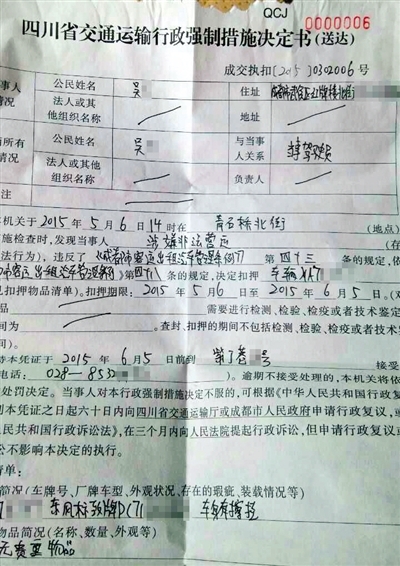 QCJ
0000006
四川省交通运输行政强制措施决定书(送达)
成交执扣〔2015〕0302006号
事人 公民姓名 吴 住址
情况 法人或其他组织名称 地址
所有 公民姓名 吴 与当事人关系
情况 法人或其他组织名称 负责人
注
本机关于2015年5月6日14时在 青石桥北街 (地点)
施检查时,发现当事人 涉嫌非法营运 (在
法行为),违反了《成都市客运出租汽车管理条例》第四十三条的规定,依
市客运出租汽车管理条例》第四十八条的规定,决定扣押 车辆
扣押物品清单)。扣押期限:2015年5月6日至2015年6月5日。(对
品 需要进行检测、检验、检疫或者技术鉴定
间为 。查封、扣押的期间不包括检测、检验、检疫或者技术鉴定
持本凭证于2015年6月5日前到 号 接受
电话:028-853 。逾期不接受处理的,本机关将依
处罚决定。当事人对本行政强制措施决定不服的,可根据《中华人民共和国行政复
到本凭证之日起六十日内向四川省交通运输厅或成都市人民政府申请行政复议,或
民共和国行政诉讼法》,在三个月内向人民法院提起行政诉讼,但申请行政复议或
讼不影响本决定的执行。
清单:
简况(车牌号、厂牌车型、外观状况、存在的瑕疵、装载情况等)
东风标致牌DC71
物品简况(名称、数量、外观等)
无贵重物品